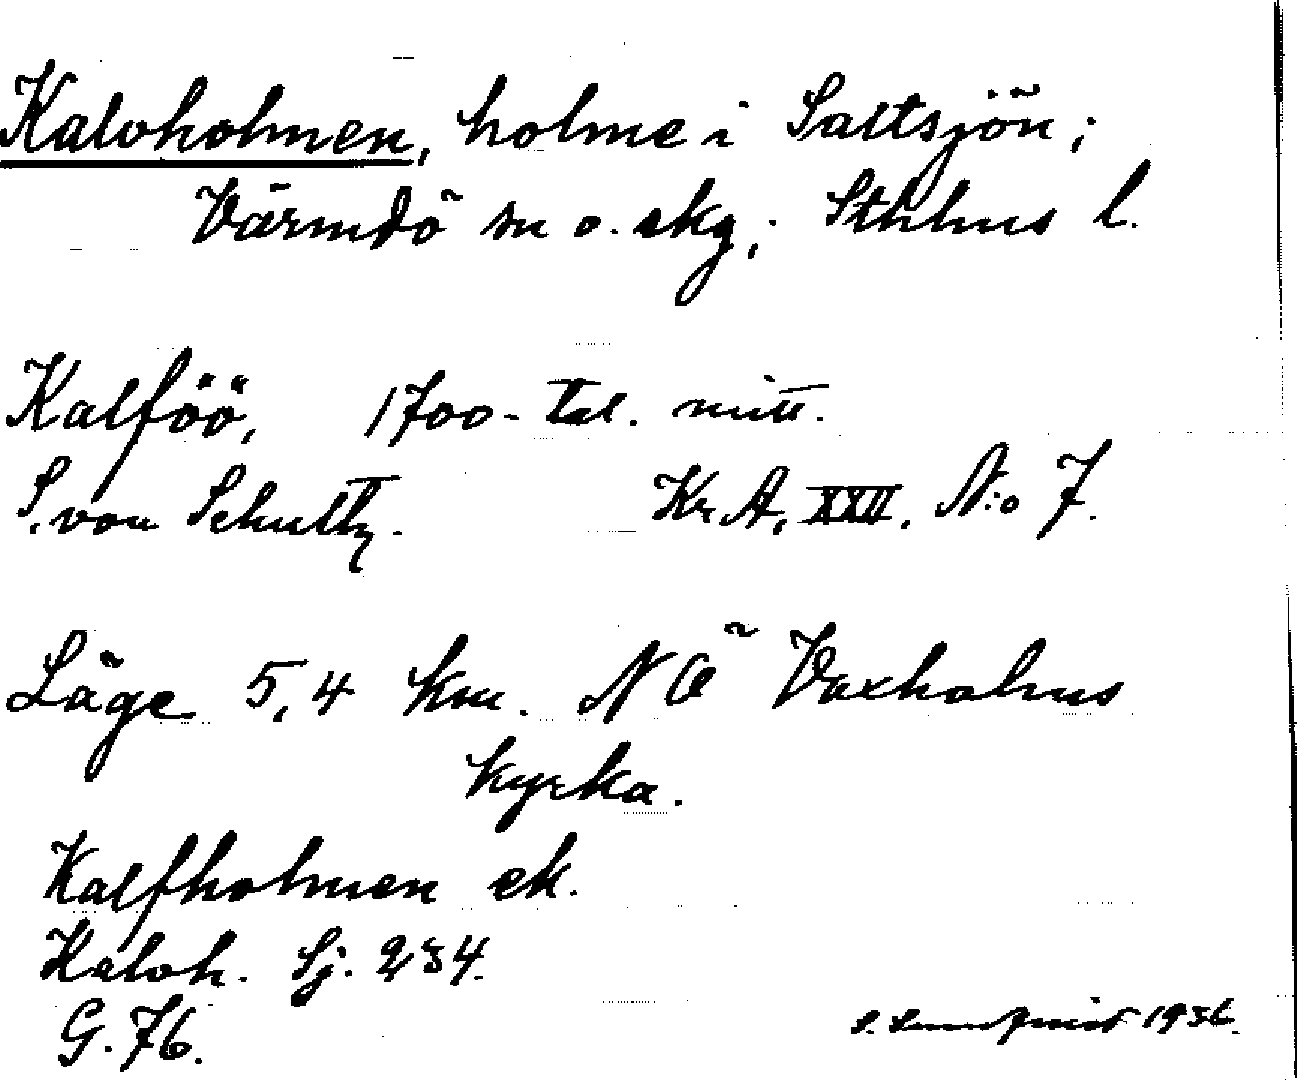 Kalvholmen, holme i Saltsjön;
Värmdö sn o. skg; Sthlms l.
Kalföö, 1700-tal. mitt.
S. von Schultz. Kr.A, XXII. N:o 7.
Läge 5,4 km. NÖ Vaxholms
kyrka.
Kalfholmen ek.
Kalvh. Sj. 234.
G. 76.
1936.